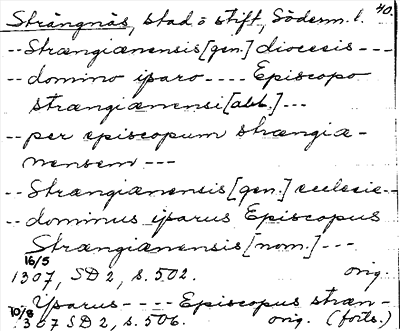 40.
Strängnäs, stad o stift, Söderm. l.
-- Strængiænensis [gen.] diocesis ---
-- domino iparo ---- Episcopo
strængiænensi [abl.] ---
-- per episcopum strængiæ-
nensem ---
-- Strængiænensis [gen.] ecclesie --
-- dominus iparus Episcopus
Strængiænensis [nom.] ---
16/5
1307, SD 2, s. 502. orig.
Yparus ---- Episcopus stræn-
10/8
1307 SD 2, s. 506. orig. (forts.)